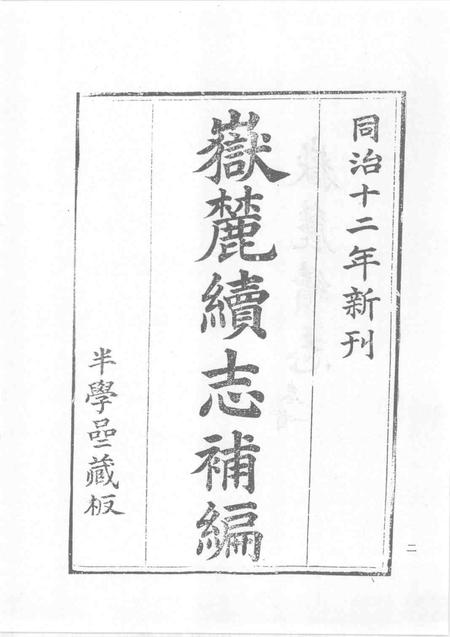 同治十二年新刊
嶽麓續志補編
半學壘藏板
二